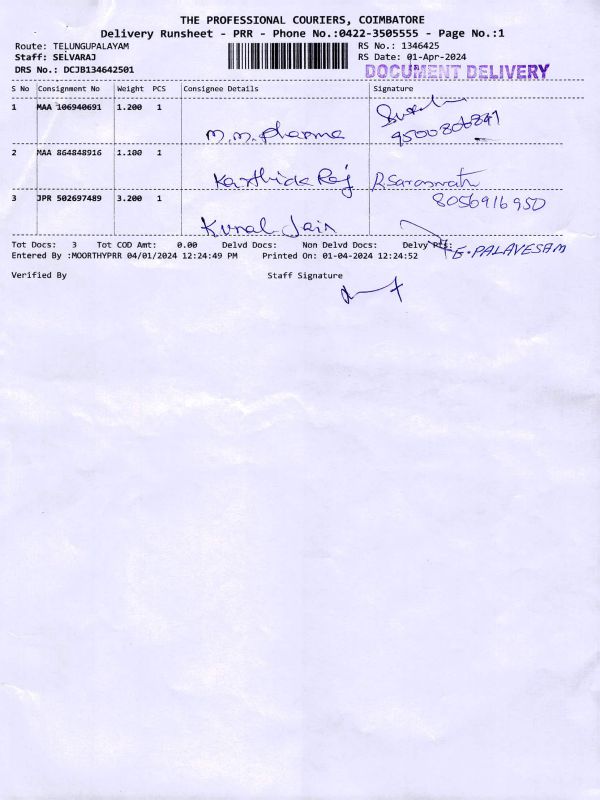 THE PROFESSIONAL COURIERS, COIMBATORE
Delivery Runsheet - PRR - Phone No.:0422-3505555 - Page No.:1
Route: TELUNGUPALAYAM RS No.: 1346425
Staff: SELVARAJ RS Date: 01-Apr-2024
DRS No.: DCJB134642501 DOCUMENT DELIVERY
S No Consignment No Weight PCS Consignee Details Signature
1 MAA 106940691 1.200 1
m.m.pharma 9500806841
2 MAA 864848916 1.100 1
Karthick Raj R.Saraswathi
3 JPR 502697489 3.200 1 8056916950
Kunal Jain
Tot Docs: 3 Tot COD Amt: 0.00 Delvd Docs: Non Delvd Docs: Delvy
Entered By :MOORTHYPRR 04/01/2024 12:24:49 PM Printed On: 01-04-2024 12:24:52 G.PALAVESAM
Verified By Staff Signature